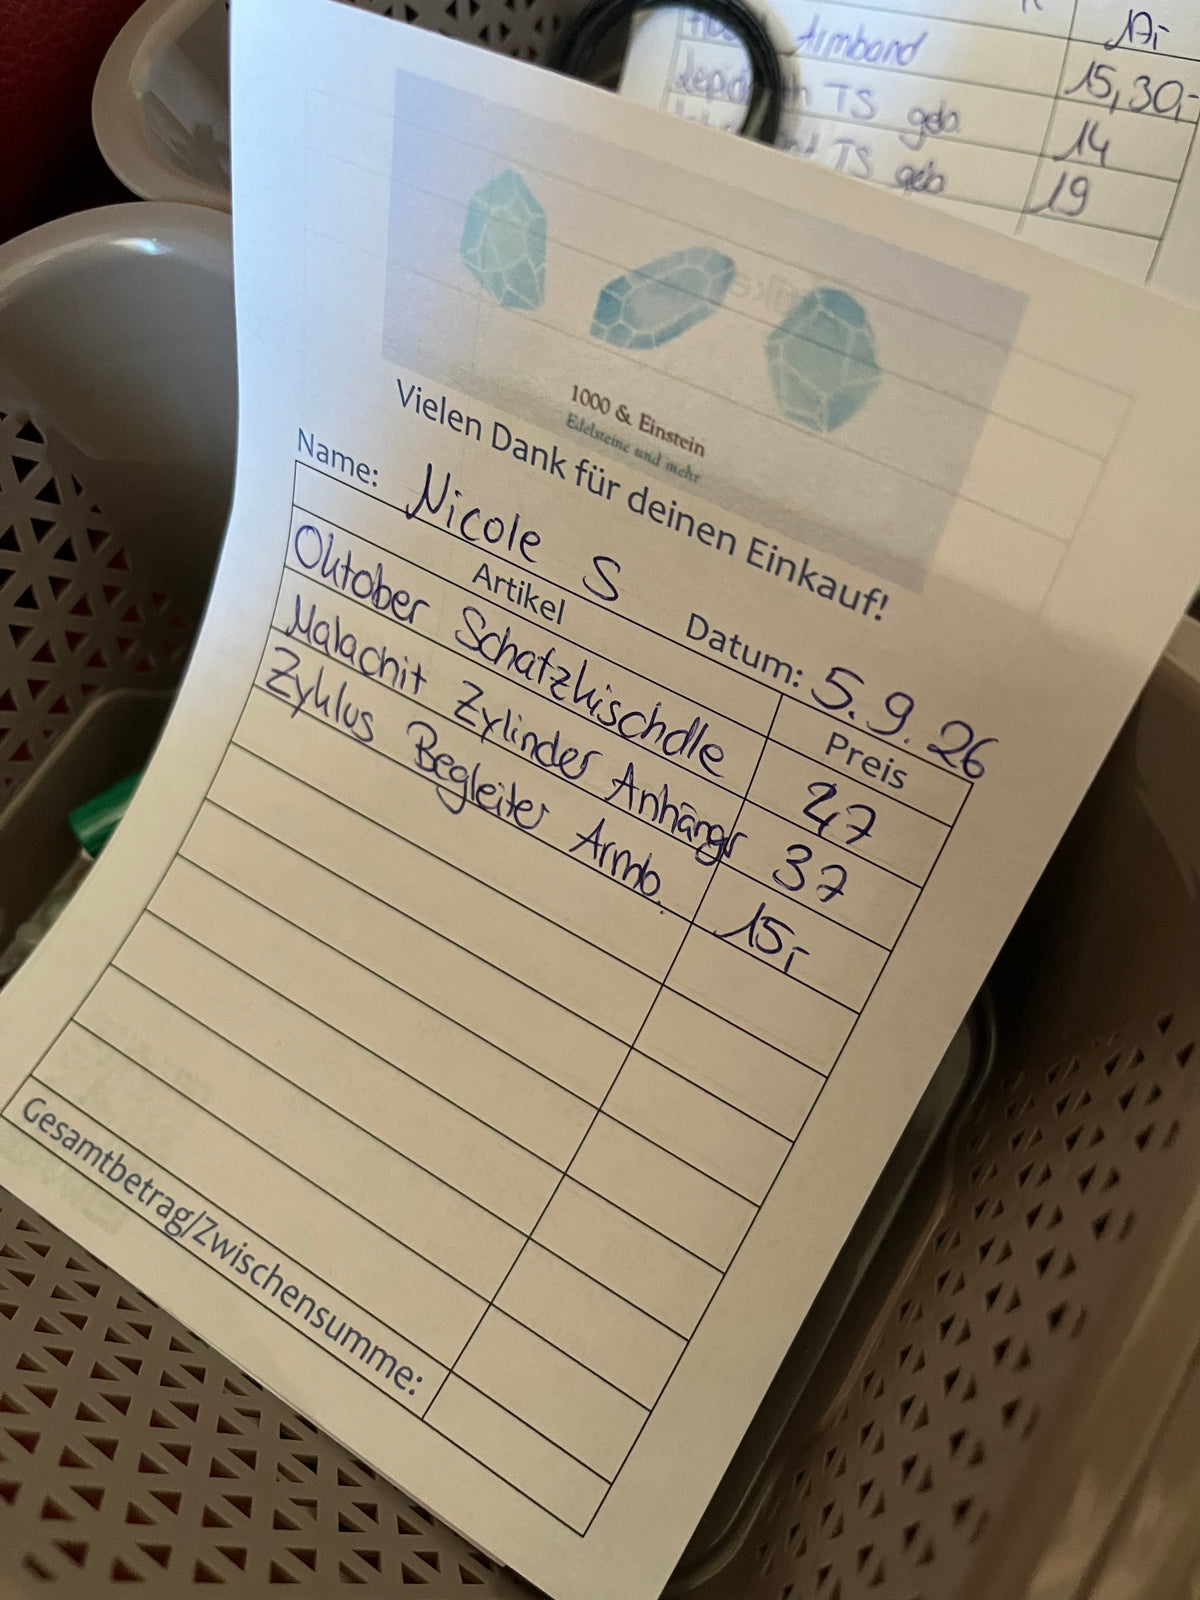 17,-
Armband 15,30,-
TS geb. 14
TS geb 19
1000 & Einstein
Edelsteine und mehr
Vielen Dank für deinen Einkauf!
Name: Nicole S Datum: 5.9.26
Artikel Preis
Oktober Schatzkischdle 27
Malachit Zylinder Anhänger 37
Zyklus Begleiter Armb. 15,-
Gesamtbetrag/Zwischensumme: